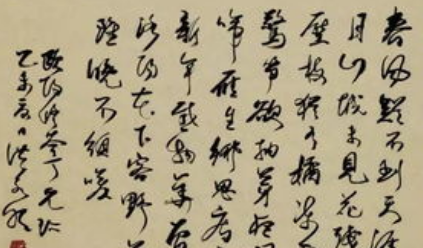 春風疑不到天涯
月山城未見花殘
壓枝猶有橘凍
驚筍欲抽芽夜
啼雁生鄉思病
新年感物華
洛陽花下客野
雖晚不須嗟
歐陽修答丁元珍
乙未夏日洪